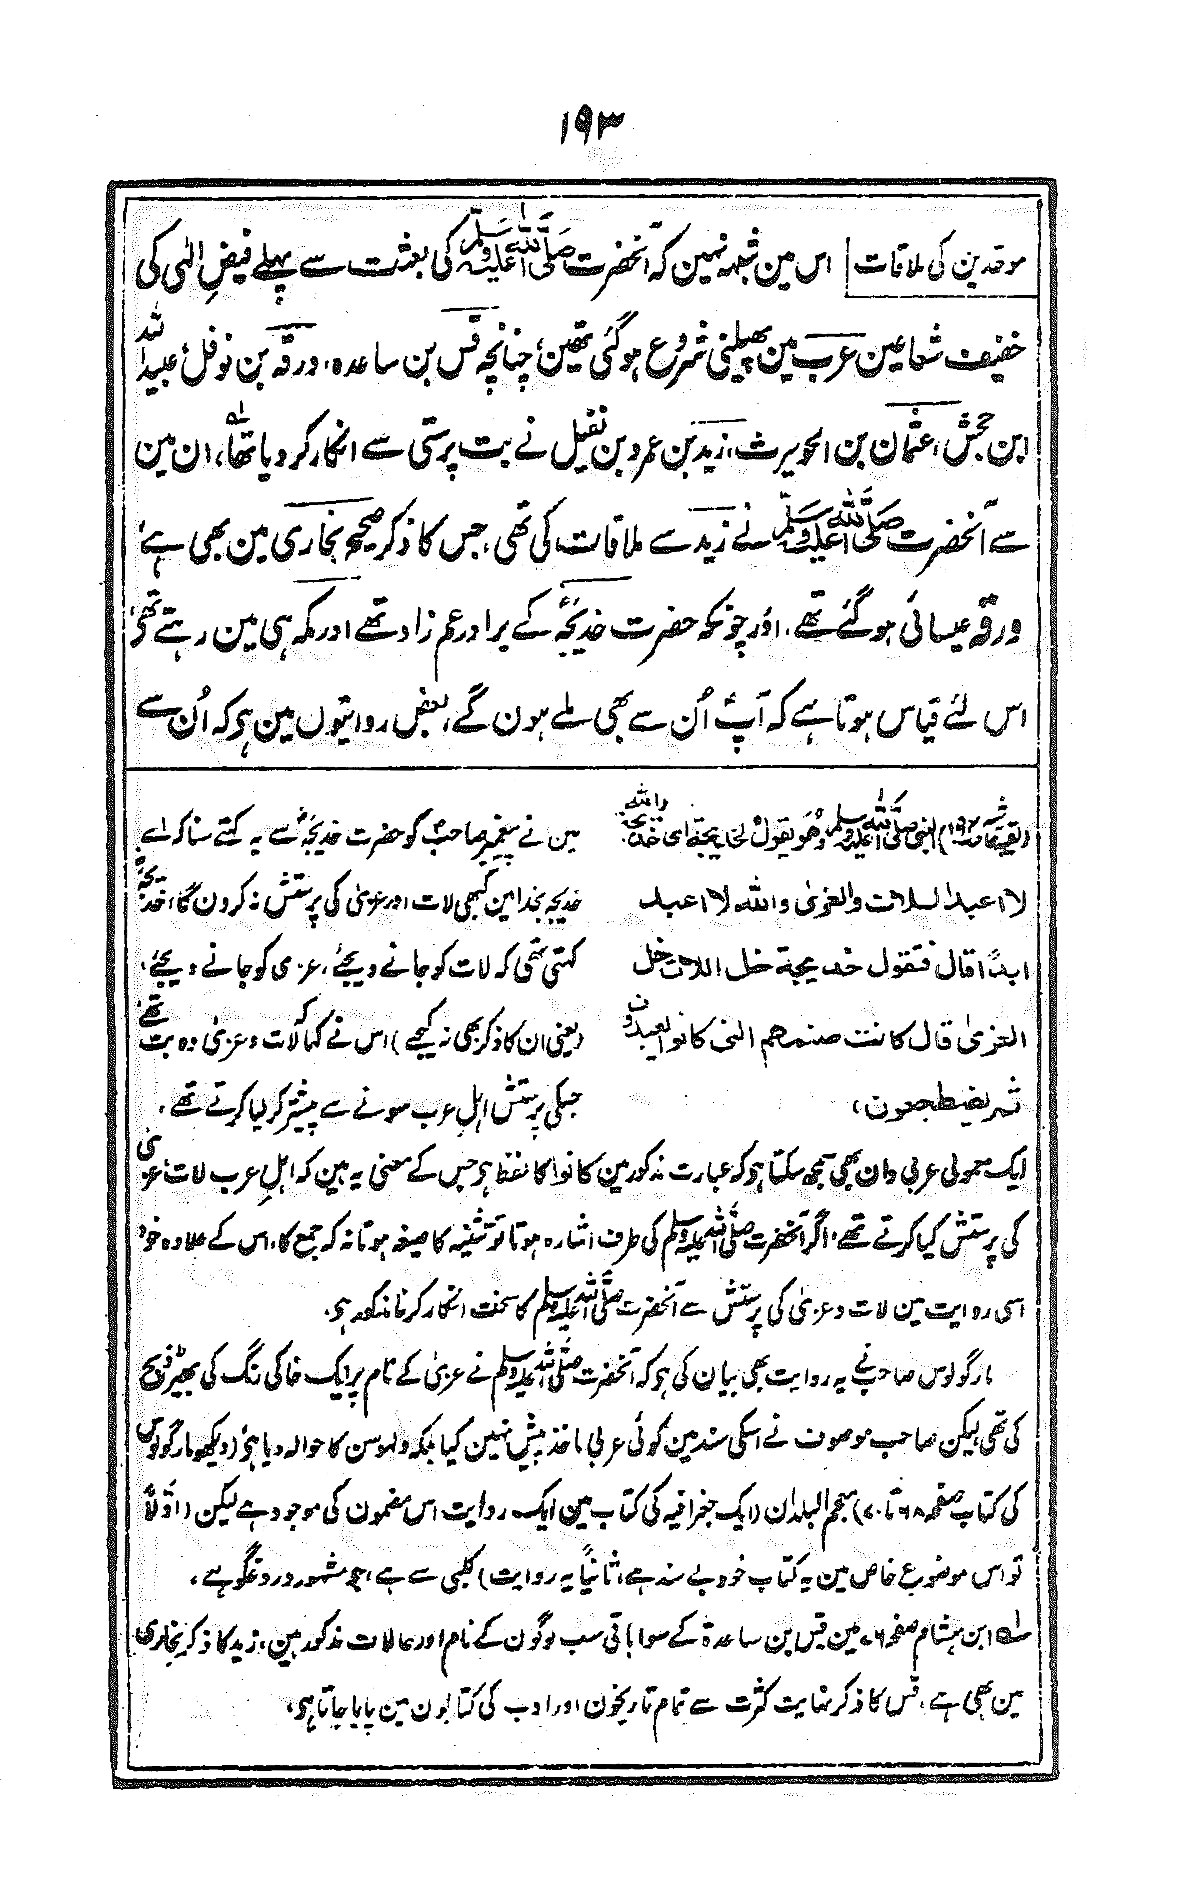 ۱۹۳
موحدین کی ملاقات اس مین شبہہ نہین کہ آنحضرت صلی اللہ علیہ وسلم کی بعثت سے پہلے فیضِ الٰہی کی
خفیف شعاعین عرب مین پھیلنی شروع ہوگئی تھین؛ چنانچہ قس بن ساعدہ، ورقہ بن نوفل، عبیداللہ
ابن جحش، عثمان بن الحویرث، زید بن عمرو بن نفیل نے بت پرستی سے انکار کر دیا تھا، ان مین
سے آنحضرت صلی اللہ علیہ وسلم نے زید سے ملاقات کی تھی، جس کا ذکر صحیح بخاری مین بھی ہے،
ورقہ عیسائی ہوگئے تھے، اور چونکہ حضرت خدیجہؓ کے برادر عم زاد تھے اور مکہ ہی مین رہتے تھے،
اس لئے قیاس ہوتا ہے کہ آپؐ اُن سے بھی ملے ہون گے، بعض روایتوں مین ہی کہ اُن سے
(بقیہ حاشیہ ۱۹۲) النبی صلی اللہ علیہ وسلم وھو یقول لخدیجة ای خدیجة واللہ
لا اعبد اللات والعزیٰ واللہ لا اعبد
ابدًا قال فتقول خدیجة خل اللات خل
العزیٰ قال کانت صنمھم التی کانوا یعبدون
ثم یضطجعون،
مین نے پیغمبر صاحب کو حضرت خدیجہؓ سے یہ کہتے سنا کہ اے
خدیجہ بخدا مین کبھی لات اور عزیٰ کی پرستش نہ کرون گا، خدیجہؓ
کہتی تھی کہ لات کو جانے دیجئے، عزی کو جانے دیجئے،
(یعنی ان کا ذکر بھی نہ کیجیے) اس نے کہا کہ لات و عزیٰ وہ بت تھے
جنکی پرستش اہلِ عرب سونے سے پیشتر کر لیا کرتے تھے،
ایک معمولی عربی دان بھی سمجھ سکتا ہو کہ عبارت مذکور مین کانوا کا لفظ ہو جس کے معنی یہ ہین کہ اہلِ عرب لات، عزیٰ
کی پرستش کیا کرتے تھے، اگر آنحضرت صلی اللہ علیہ وسلم کی طرف اشارہ ہوتا تو تثنیہ کا صیغہ ہوتا نہ کہ جمع کا، اس کے علاوہ خود
اسی روایت مین لات و عزیٰ کی پرستش سے آنحضرت صلی اللہ علیہ وسلم کا سخت انکار کرنا مذکور ہی،
مارگولوس صاحب نے یہ روایت بھی بیان کی ہو کہ آنحضرت صلی اللہ علیہ وسلم نے عزیٰ کے نام پر ایک خاکی رنگ کی بھیڑ ذبح
کی تھی لیکن صاحب موصوف نے اسکی سند مین کوئی عربی ماخذ پیش نہین کیا بلکہ ولہوسن کا حوالہ دیا ہی، (دیکھو مارگولوس
کی کتاب صفحہ ۶۸ تا ۷۰) معجم البلدان (ایک جغرافیہ کی کتاب مین ایک روایت اس مضمون کی موجود ہے لیکن (اوّلاً
تو اس موضوع خاص مین یہ کتاب خود بے سند ہے، ثانیاً یہ روایت) کلبی سے ہے، جو مشہور دروغگو ہے،
لے ابن ہشام صفحہ ۷۶ مین قس بن ساعدۃ کے سوا باقی سب لوگون کے نام اور حالات مذکور ہین، زید کا ذکر بخاری
مین بھی ہے، قس کا ذکر نہایت کثرت سے تمام تاریخون اور ادب کی کتابون مین پایا جاتا ہو،